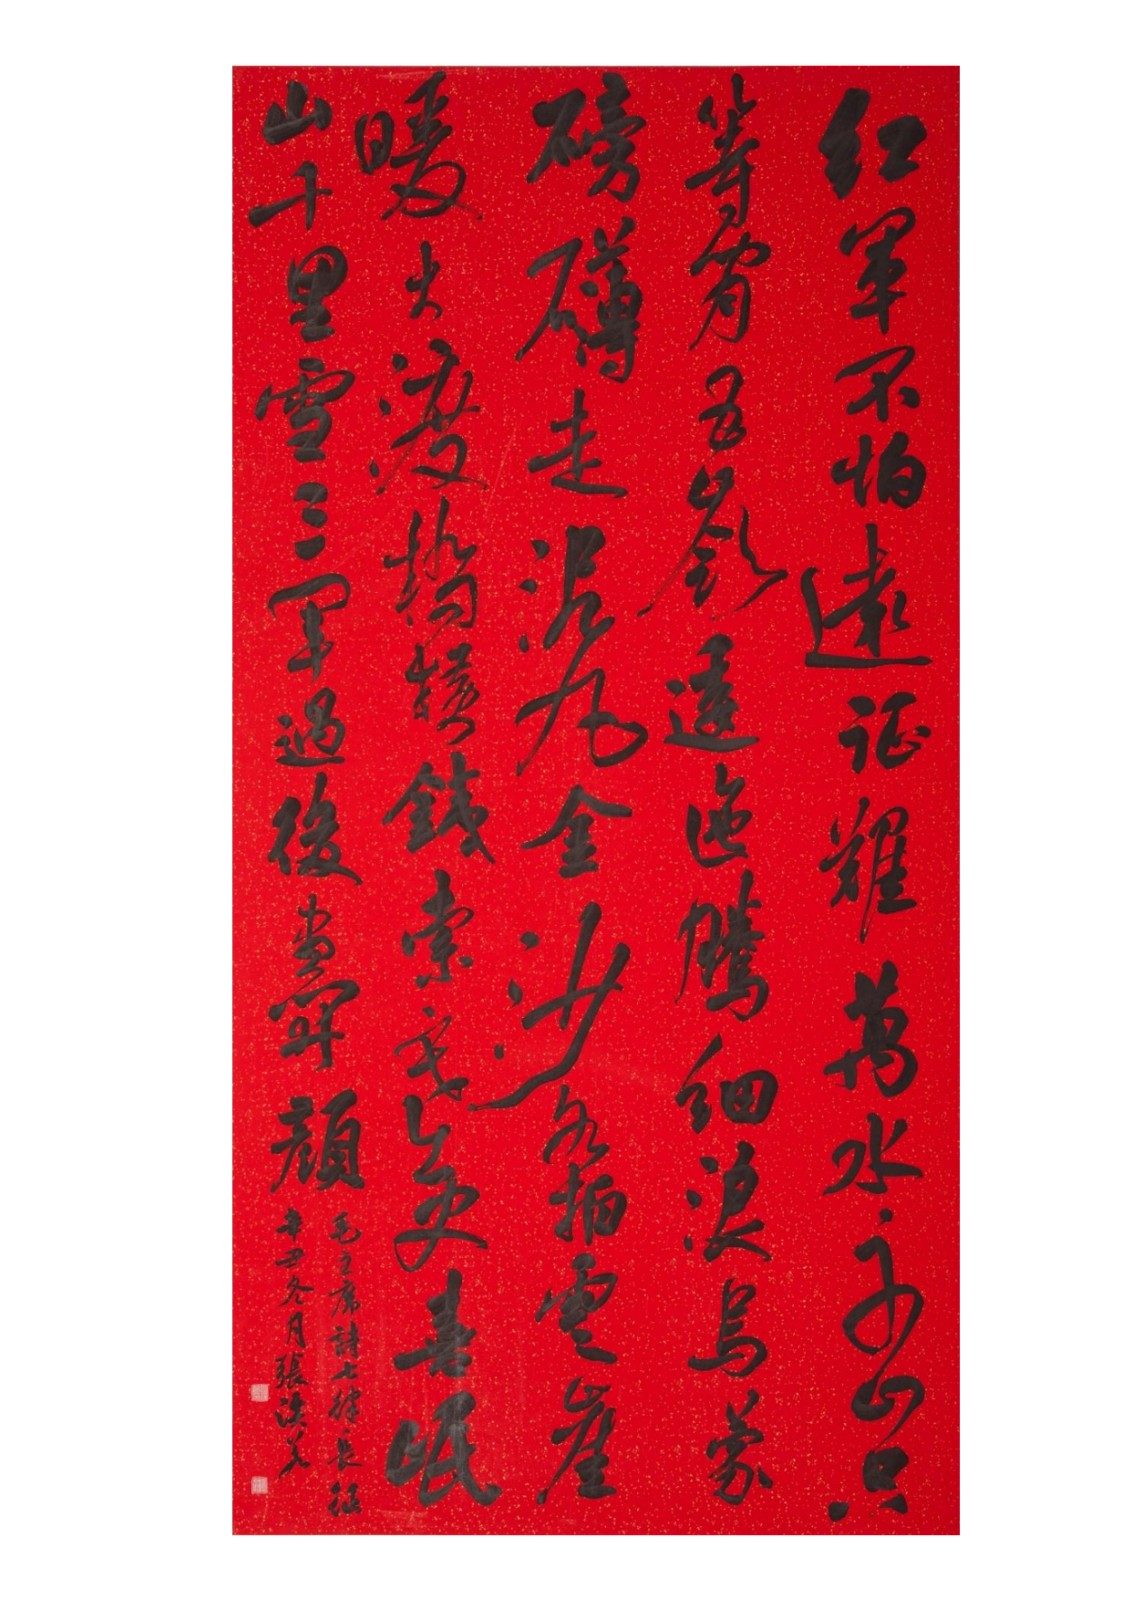 紅軍不怕遠征難萬水千山只
等閒五嶺逶迤騰細浪烏蒙
磅礴走泥丸金沙水拍雲崖
暖大渡橋橫鐵索寒更喜岷
山千里雪三軍過後盡開顏
毛主席詩七律長征
辛丑冬月張